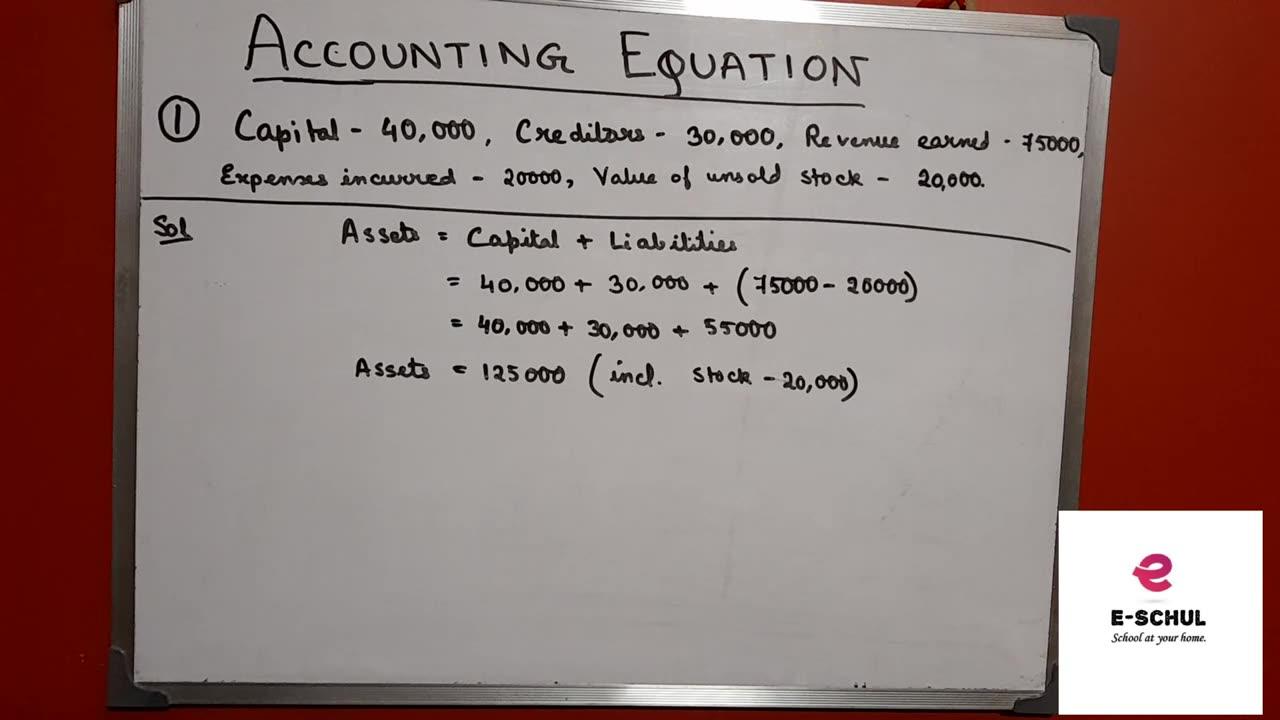 ACCOUNTING EQUATION
① Capital - 40,000, Creditors - 30,000, Revenue earned - 75000,
Expenses incurred - 20000, Value of unsold stock - 20,000.
Sol
Assets = Capital + Liabilities
= 40,000 + 30,000 + (75000 - 20000)
= 40,000 + 30,000 + 55000
Assets = 125000 (incl. stock - 20,000)
e
E-SCHUL
School at your home.